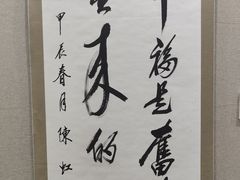 福是奮
来的
甲辰春月陳虹